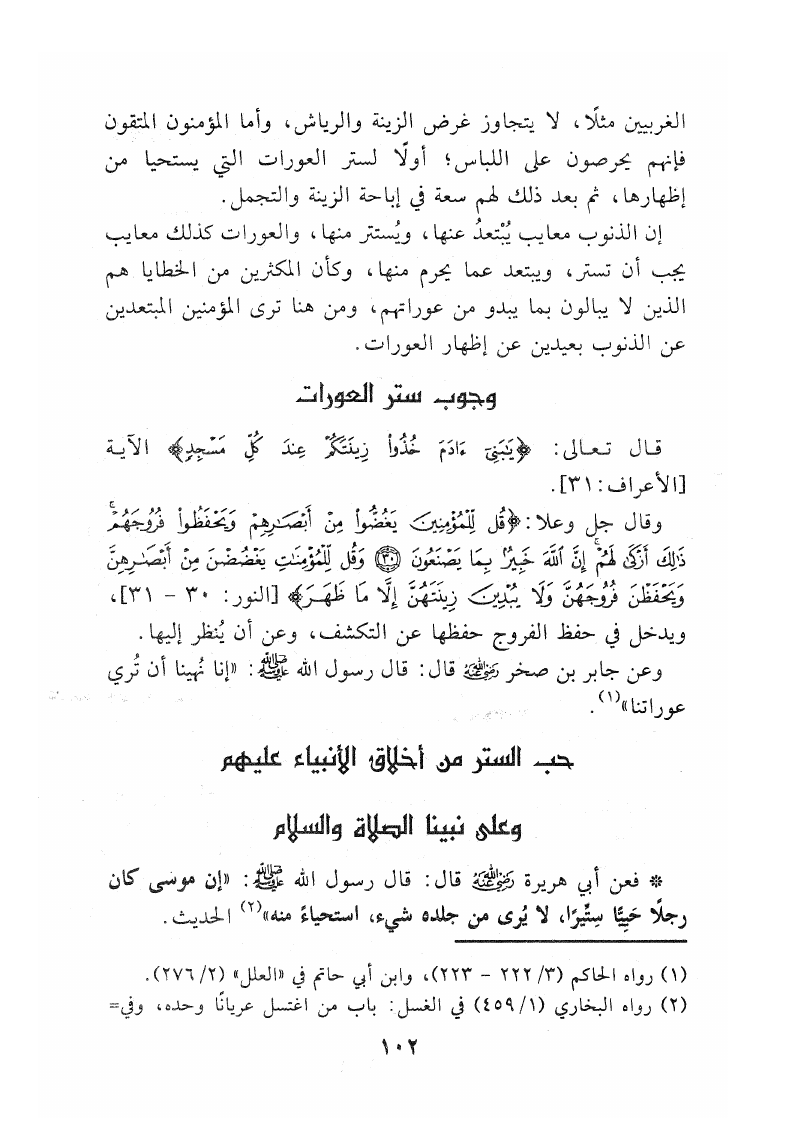 الغربيين مثلًا، لا يتجاوز غرض الزينة والرياش، وأما المؤمنون المتقون
فإنهم يحرصون على اللباس؛ أولًا لستر العورات التي يستحيا من
إظهارها، ثم بعد ذلك لهم سعة في إباحة الزينة والتجمل.
إن الذنوب معايب يُبْتعدُ عنها، ويُستتر منها، والعورات كذلك معايب
يجب أن تستر، ويبتعد عما يحرم منها، وكأن المكثرين من الخطايا هم
الذين لا يبالون بما يبدو من عوراتهم، ومن هنا ترى المؤمنين المبتعدين
عن الذنوب بعيدين عن إظهار العورات.
وجوب ستر العورات
قال تعالى: ﴿يَٰبَنِىٓ ءَادَمَ خُذُوا۟ زِينَتَكُمْ عِندَ كُلِّ مَسْجِدٍ﴾ الآية
[الأعراف: ٣١].
وقال جل وعلا: ﴿قُل لِّلْمُؤْمِنِينَ يَغُضُّوا۟ مِنْ أَبْصَٰرِهِمْ وَيَحْفَظُوا۟ فُرُوجَهُمْ ۚ
ذَٰلِكَ أَزْكَىٰ لَهُمْ ۗ إِنَّ ٱللَّهَ خَبِيرٌۢ بِمَا يَصْنَعُونَ ٣٠ وَقُل لِّلْمُؤْمِنَٰتِ يَغْضُضْنَ مِنْ أَبْصَٰرِهِنَّ
وَيَحْفَظْنَ فُرُوجَهُنَّ وَلَا يُبْدِينَ زِينَتَهُنَّ إِلَّا مَا ظَهَرَ﴾ [النور: ٣٠ - ٣١]،
ويدخل في حفظ الفروج حفظها عن التكشف، وعن أن يُنظر إليها.
وعن جابر بن صخر رضي الله عنه قال: قال رسول الله ﷺ: «إنا نُهينا أن تُري
عوراتنا»(١).
حب الستر من أخلاق الأنبياء عليهم
وعلى نبينا الصلاة والسلام
* فعن أبي هريرة رضي الله عنه قال: قال رسول الله ﷺ: «إن موسى كان
رجلًا حَيِيًّا سِتِّيرًا، لا يُرى من جلده شيء، استحياءً منه»(٢) الحديث.
(١) رواه الحاكم (٣/ ٢٢٢ - ٢٢٣)، وابن أبي حاتم في «العلل» (٢/ ٢٧٦).
(٢) رواه البخاري (١/ ٤٥٩) في الغسل: باب من اغتسل عريانًا وحده، وفي=
١٠٢